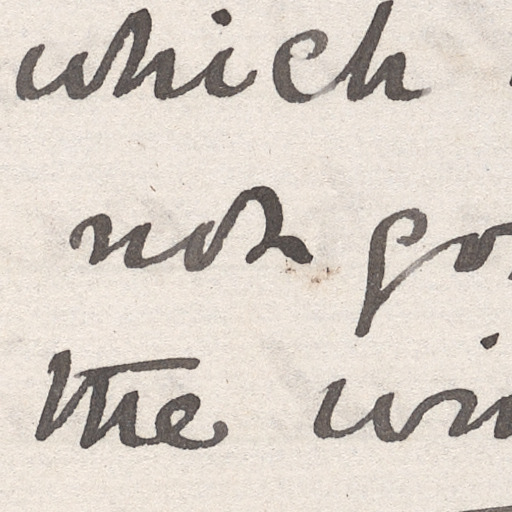 which
not go
the wi